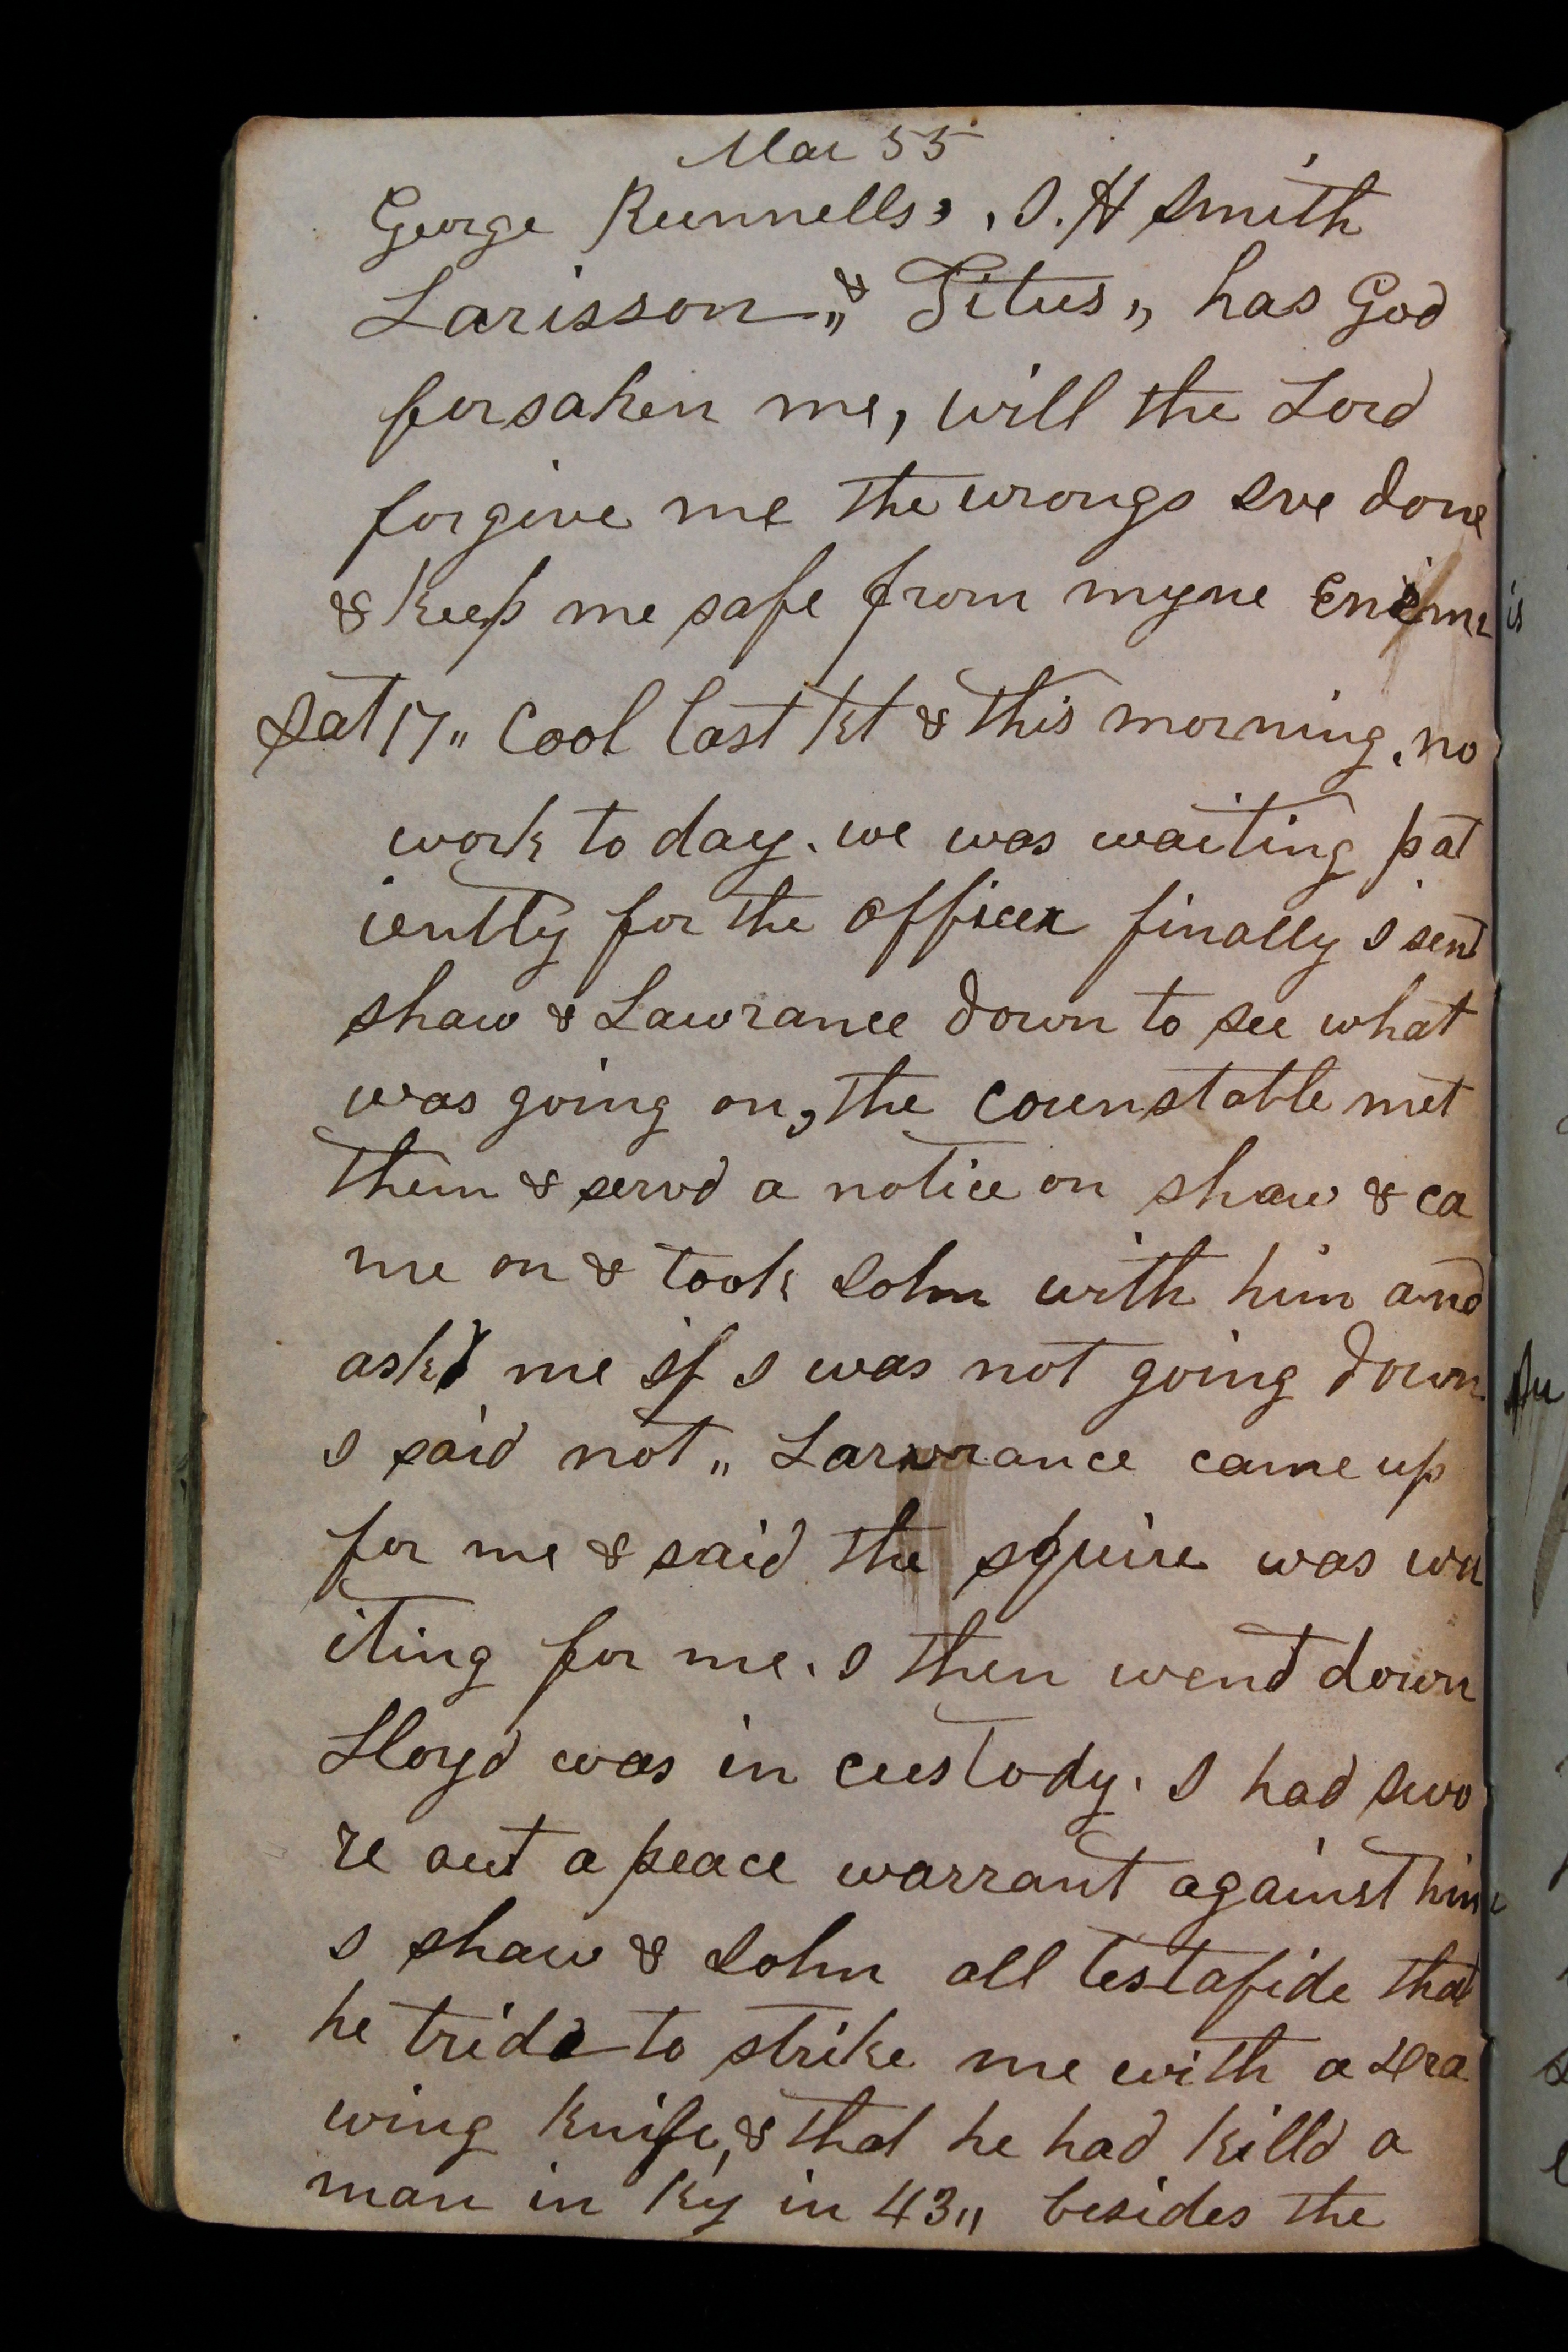 Mar 55
George Runnells, I. H Smith
Larisson,, & Titus,, has God
forsaken me, will the Lord
forgive me the wrongs Ive done
& keep me safe from myne Enime
is
Sat 17,, Cool last Kt & this morning. no
work to day. we was waiting pat
iently for the officer finally I sent
Shaw & Lawrance down to see what
was going on, the Counstable met
them & servd a notice on Shaw & ca
me on & took Sohn with him and
askd me if I was not going down
I said not,, Larwrance came up
for me & said the squire was wa
iting for me. I then went down
Lloyd was in custody. I had swo
re out a peace warrant against him
I Shaw & Sohn all testafide that
he tride to strike me with a dra
wing knife, & that he had killd a
man in Ky in 43,, besides the